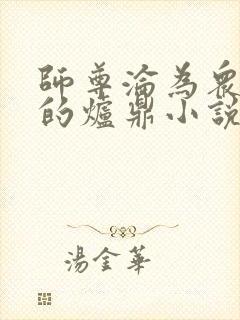 師尊淪為眾
的爐鼎小說
湯金華